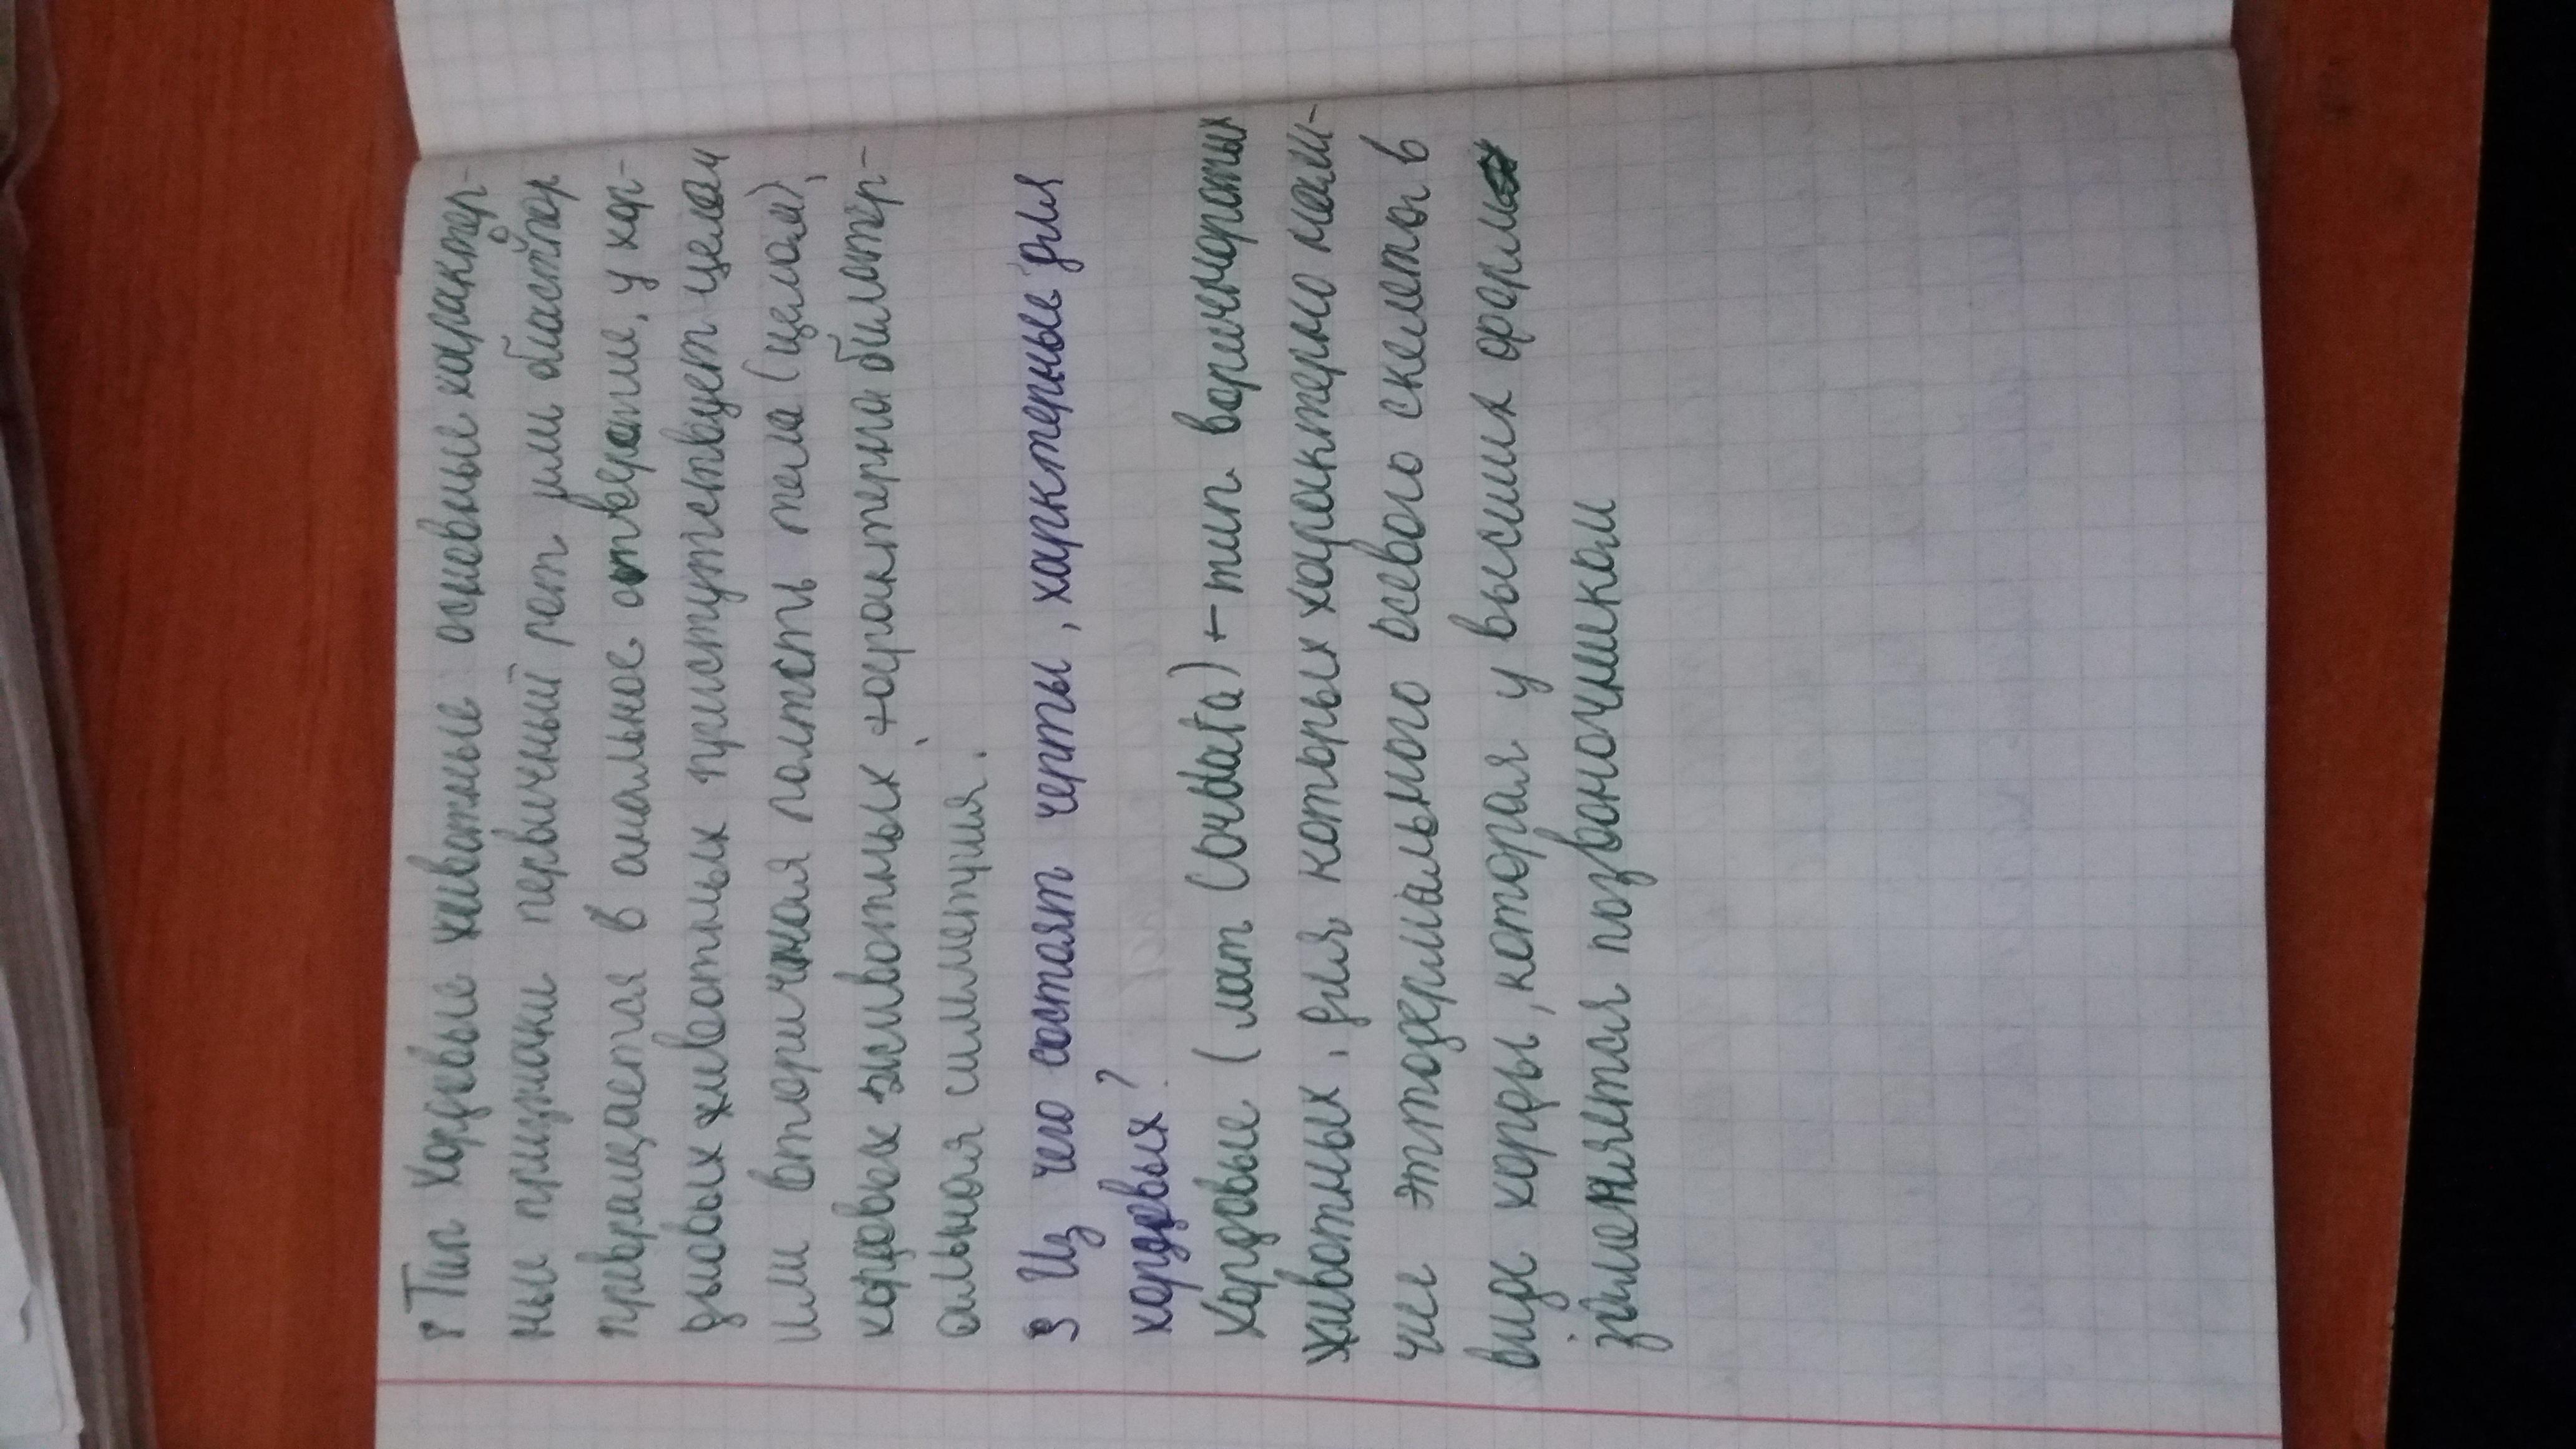 8 Тип Хордовые животные основные характер-
ные признаки первичный рот или бластопор
превращается в анальное отверстие, у хор-
довых животных присутствует целом
или вторичная полость тела (целом),
хордовых животных характерна билатер-
альная симметрия.
9 Из чего состоят черты, харктерные для
хордовых?
Хордовые (лат Cочdata) - тип вторичноротых
животных, для которых характерно нали-
чие энтодермального осевого скелета в
виде хорды, которая у высших форм
заменяется позвоночником